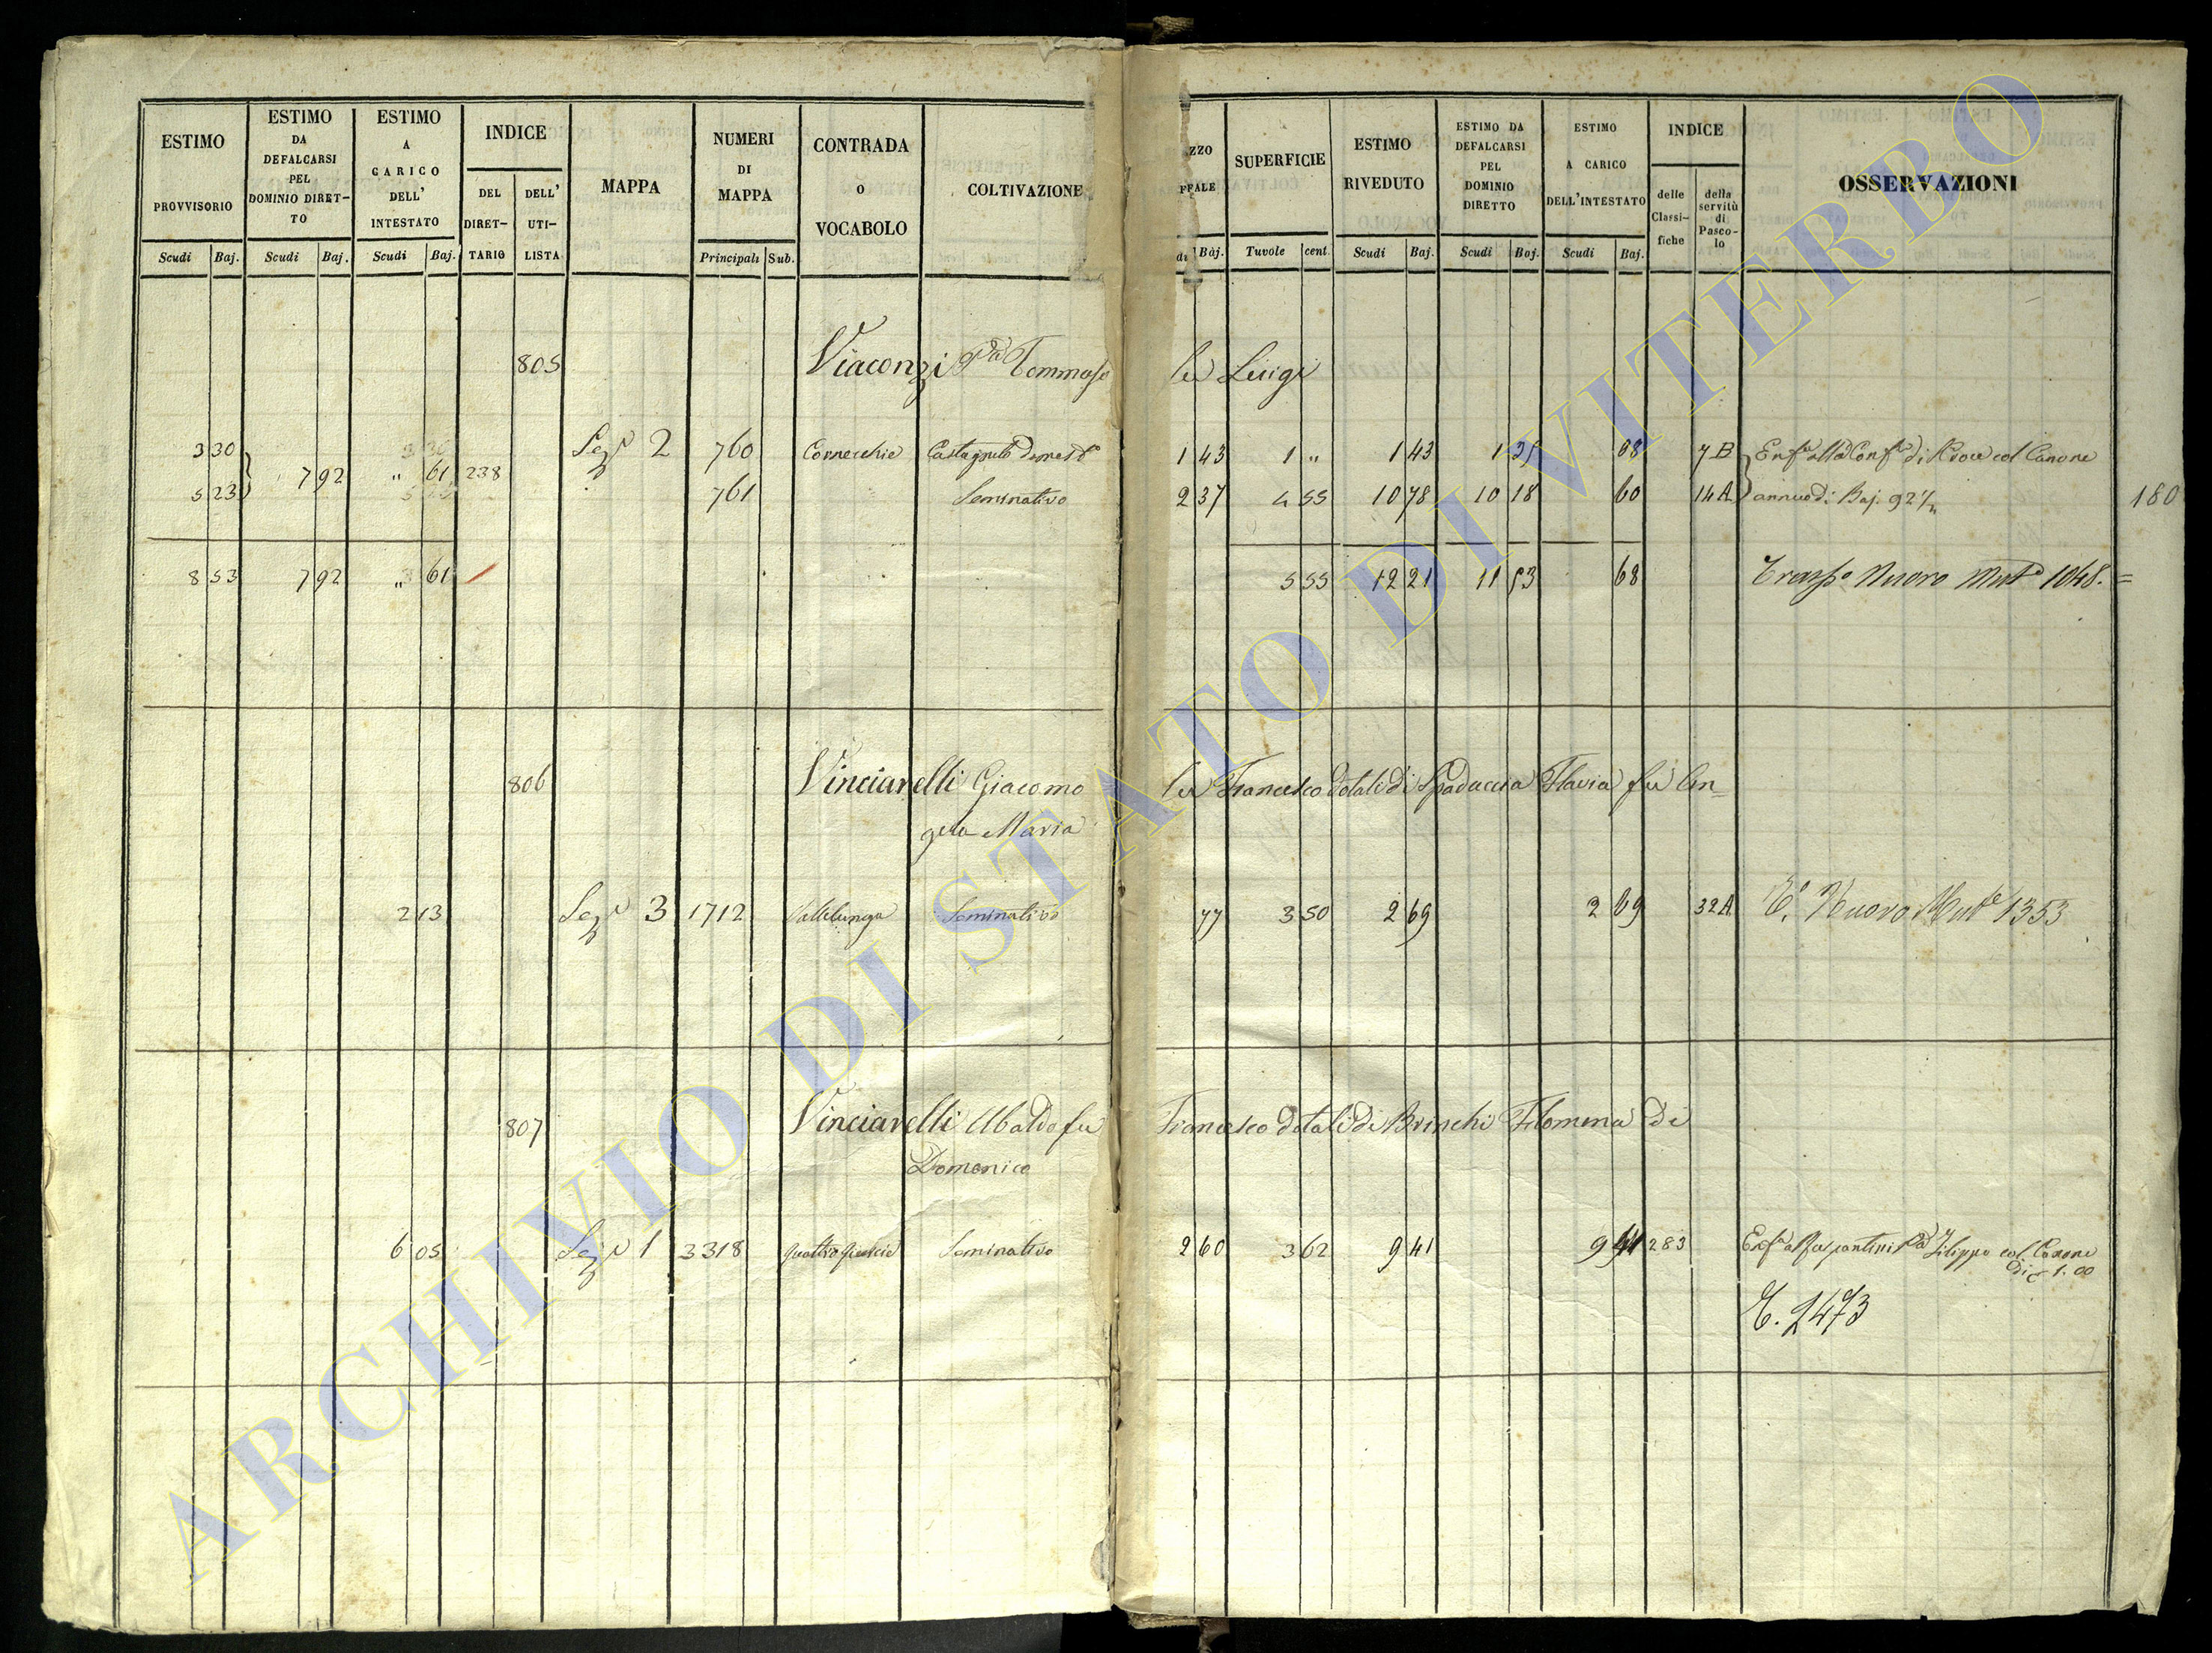 ESTIMO PROVVISORIO
ESTIMO DA DEFALCARSI PEL DOMINIO DIRET-TO
ESTIMO A CARICO DELL' INTESTATO
INDICE
DEL DIRET-TARIO
DELL' UTI-LISTA
MAPPA
NUMERI DI MAPPA
CONTRADA O VOCABOLO
COLTIVAZIONE
ZZO
FFALE
SUPERFICIE
ESTIMO RIVEDUTO
ESTIMO DA DEFALCARSI PEL DOMINIO DIRETTO
ESTIMO A CARICO DELL'INTESTATO
INDICE
delle Classi-fiche
della servitù di Pasco-lo
OSSERVAZIONI
Scudi Baj. Scudi Baj. Scudi Baj. Principali Sub.
di Baj. Tavole cent. Scudi Baj. Scudi Baj. Scudi Baj.
805 Viaconzi Tommaso fu Luigi
3 30 Sez. 2 760 Cornecchie Castagneto 1 43 1 " 1 43 1 35 08 7B
7 92 " 61 238
5 23 761 Seminativo 2 37 4 55 10 78 10 18 60 14A annuo di Baj. 92
180
8 53 7 92 " 61 5 55 12 21 11 53 68 Nuovo 1048. =
806 Vinciarelli Giacomo fu Francesco dotali di Spadaccia Flavia fu An=
gelo Maria
2 13 Sez. 3 1712 Vallelunga Seminativo 77 3 50 2 69 2 69 32A Nuovo 1353
807 Vinciarelli Ubaldo fu Francesco dotali di Brinchi Filomena di
Domenico
6 05 Sez. 1 3318 Seminativo 2 60 3 62 9 41 9 41 283 Filippo col Canone
di 1.00
T. 2473
ARCHIVIO DI STATO DI VITERBO